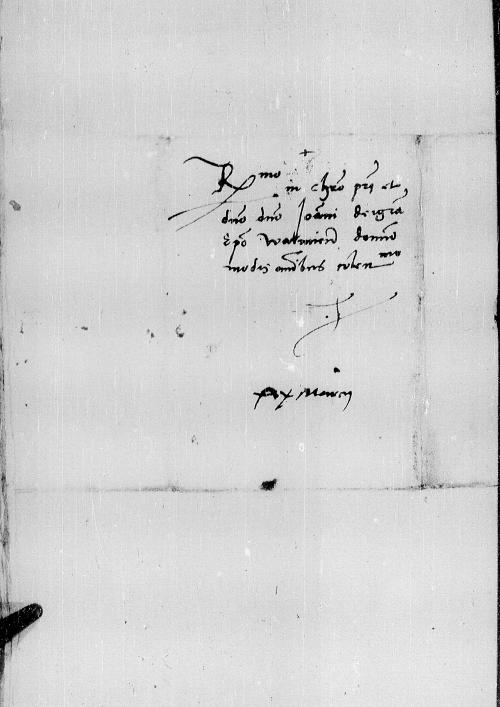 +
R mo in chro pri et
dno dno Joanni dei gra
Epo Warmien domino
modis omibus colen mo